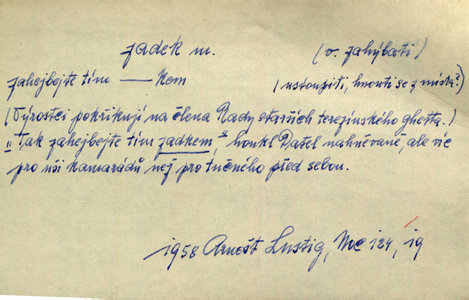 zadek m. (v. zahýbati)
zahejbejte tím —kem (ustoupiti, hnouti se z místa?)
(Výrostci pokřikují na člena Rady starších terezínského ghetta.)
"Tak zahejbejte tím zadkem", houkl Pašel nahněvaně, ale víc
pro uši kamarádů než pro tučného před sebou.
1958 Arnošt Lustig, Me 124, 19